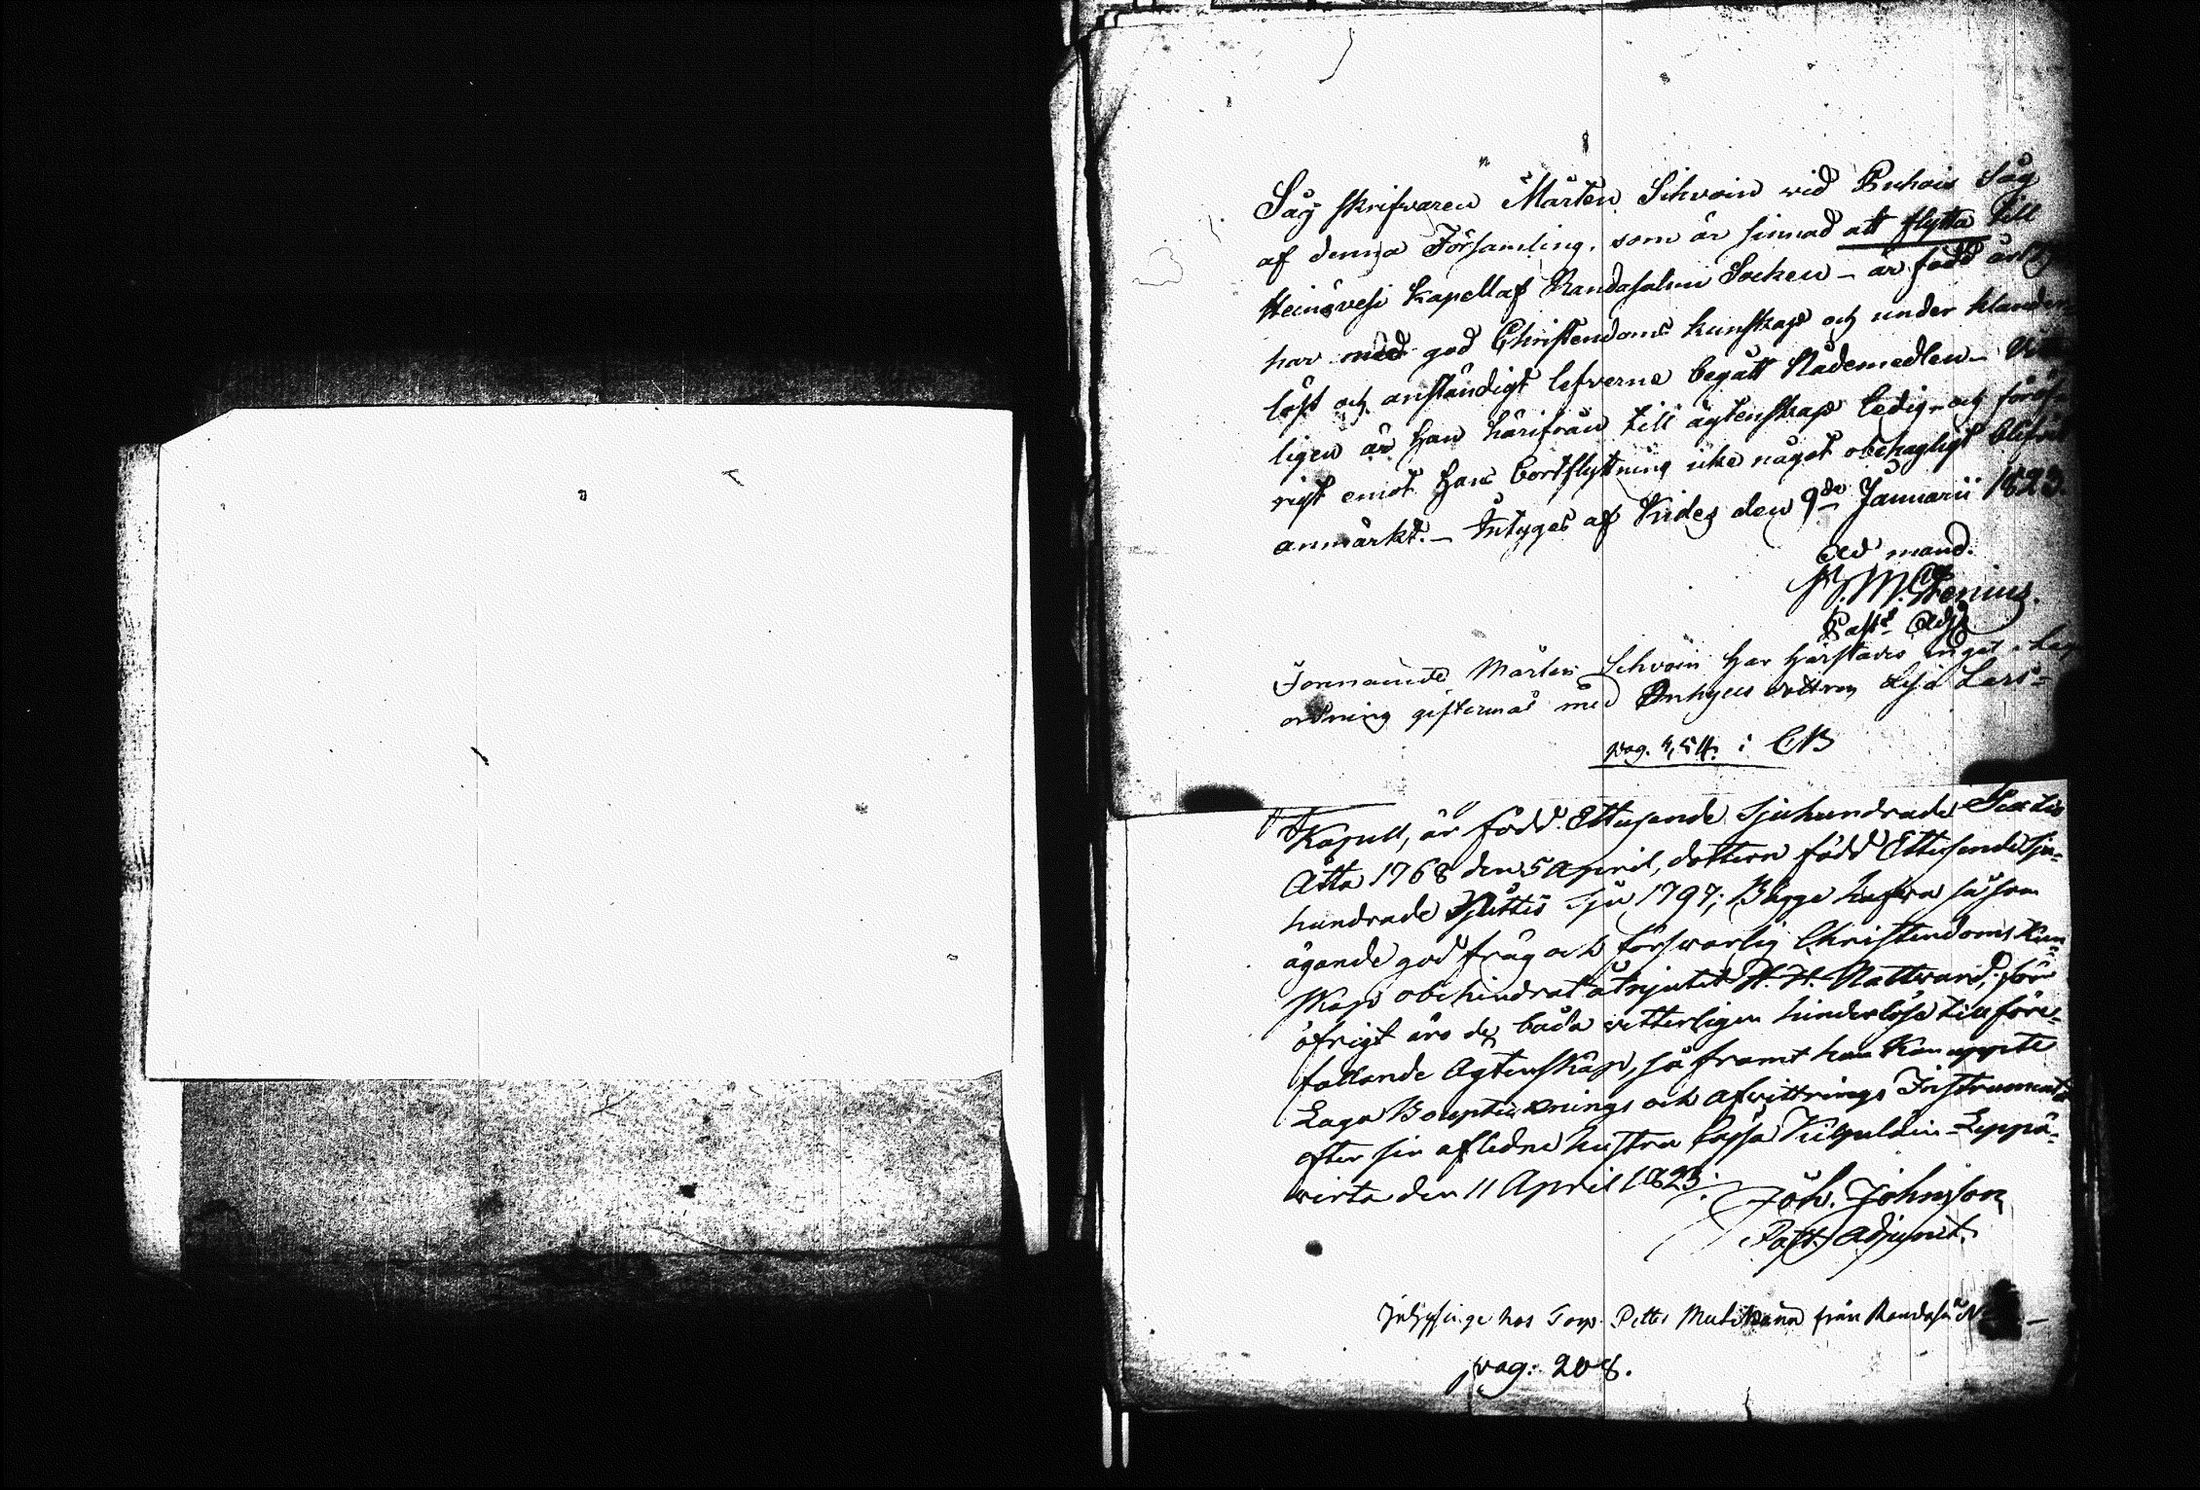 Såg skrifvaren Mårten Sihvoin vid Puhois Såg
af denna Församling, som är sinnad att flytta till
Heinävesi Kapell af Randasalmi Socken – är född år
har med god Christendoms kunskap och under klander
löst och anständigt lefverne begått Nådemedlen –
ligen är han härifrån till ägtenskap ledig – och föröf-
rigt emot hans bortflyttning icke något obehagligt blifvit
anmärkt. – Intygas af Kides den 9de Januarii 1823.
Ad mand.
Stenius.
Past: Adj:
Förenämnde Mårten Sihvoin har härstädes ingåt i
ordning giftermål med dottren Lisa Lars=
pag. 454. i CB
Kapell, är född Ettusende Sjuhundrade Sextio
Åtta 1768 den 5 April, dottern född Ettusende Sju-
hundrade Nittio Sju 1797; Bägge hafva såsom
ägande god fräg och försvarlig Christendoms Kun=
skap obehindrat åtnjutit H. H. Nattvard; för
öfrigt äro de båda vitterligen hinderlöse till före=
fallande Ägtenskap, så framt han kan uppte
Laga Bouptecknings och afvittrings Instrument
efter sin aflidne hustru Cajsa Leppä=
virta den 11 April 1823.
Joh. Johnsson
Past. Adjunct.
Inhysinge hos Torp. Petter från
pag: 208.